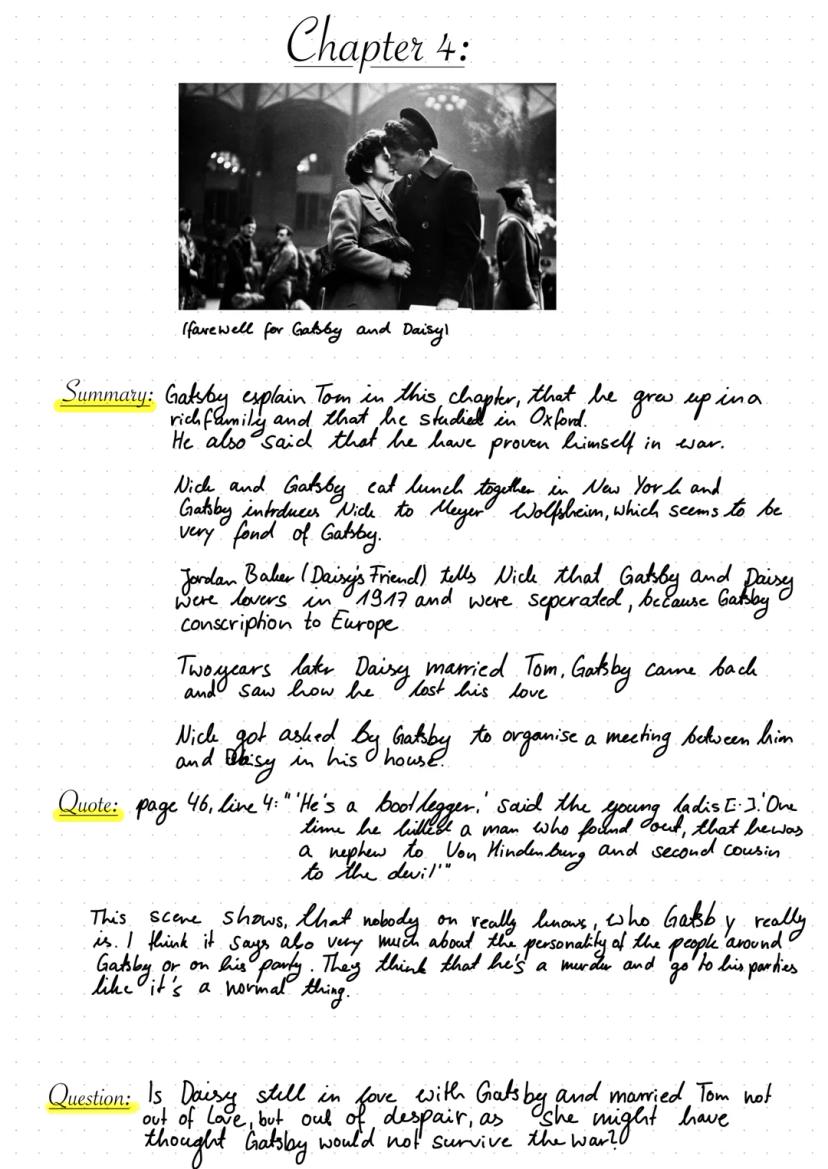 Chapter 4:
(farewell for Gatsby and Daisy)
Summary: Gatsby explain Tom in this chapter, that he grew up in a
rich family and that he studied in Oxford.
He also said that he have proven himself in war.
Nick and Gatsby eat lunch together in New York and
Gatsby introduces Nick to Meyer Wolfsheim, which seems to be
very fond of Gatsby.
Jordan Baker (Daisy's Friend) tells Nick that Gatsby and Daisy
were lovers in 1917 and were seperated, because Gatsby
conscription to Europe
Two years later Daisy married Tom, Gatsby came back
and saw how he lost his love
Nick got asked by Gatsby to organise a meeting between him
and Daisy in his house.
Quote: page 46, line 4: "'He's a bootlegger,' said the young ladis [..]. 'One
time he killed a man who found out, that he was
a nephew to Von Hindenburg and second cousin
to the devil'"
This scene shows, that nobody on really knows, who Gatsby really
is. I think it says also very much about the personality of the people around
Gatsby or on his party. They think that he's a murder and go to his parties
like it's a normal thing.
Question: Is Daisy still in love with Gatsby and married Tom not
out of love, but out of despair, as she might have
thought Gatsby would not survive the war?